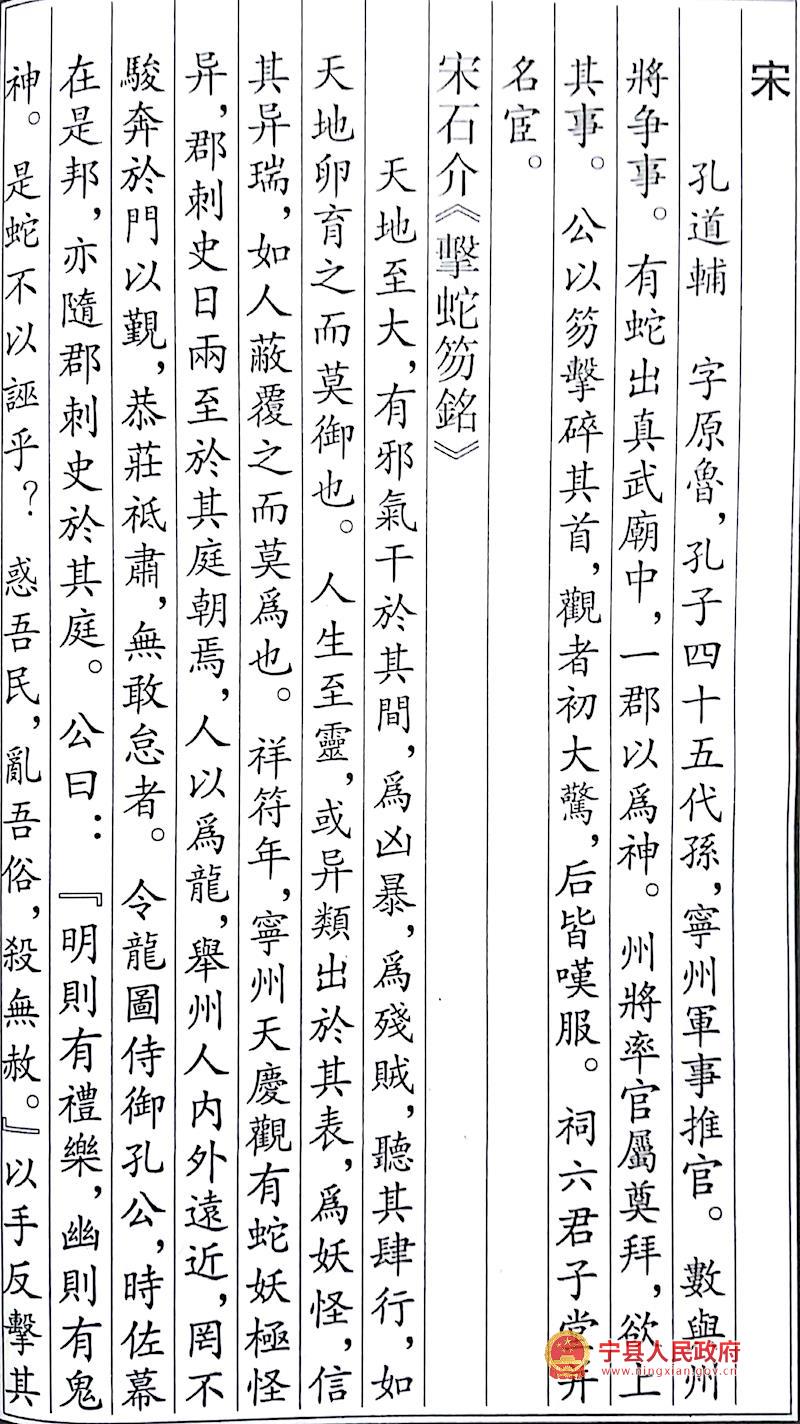 宋
孔道輔　字原魯，孔子四十五代孫，寧州軍事推官。數與州
將争事。有蛇出真武廟中，一郡以爲神。州將率官屬奠拜，欲上
其事。公以笏擊碎其首，觀者初大驚，后皆嘆服。祠六君子堂并
名宦。
宋石介《擊蛇笏銘》
天地至大，有邪氣干於其間，爲凶暴，爲殘賊，聽其肆行，如
天地卵育之而莫御也。人生至靈，或异類出於其表，爲妖怪，信
其异瑞，如人蔽覆之而莫爲也。祥符年，寧州天慶觀有蛇妖極怪
异，郡刺史日兩至於其庭朝焉，人以爲龍，舉州人内外遠近，罔不
駿奔於門以觀，恭莊祇肅，無敢怠者。令龍圖侍御孔公，時佐幕
在是邦，亦隨郡刺史於其庭。公曰：『明則有禮樂，幽則有鬼
神。是蛇不以誣乎？惑吾民，亂吾俗，殺無赦。』以手反擊其
宁县人民政府
www.ningxian.gov.cn